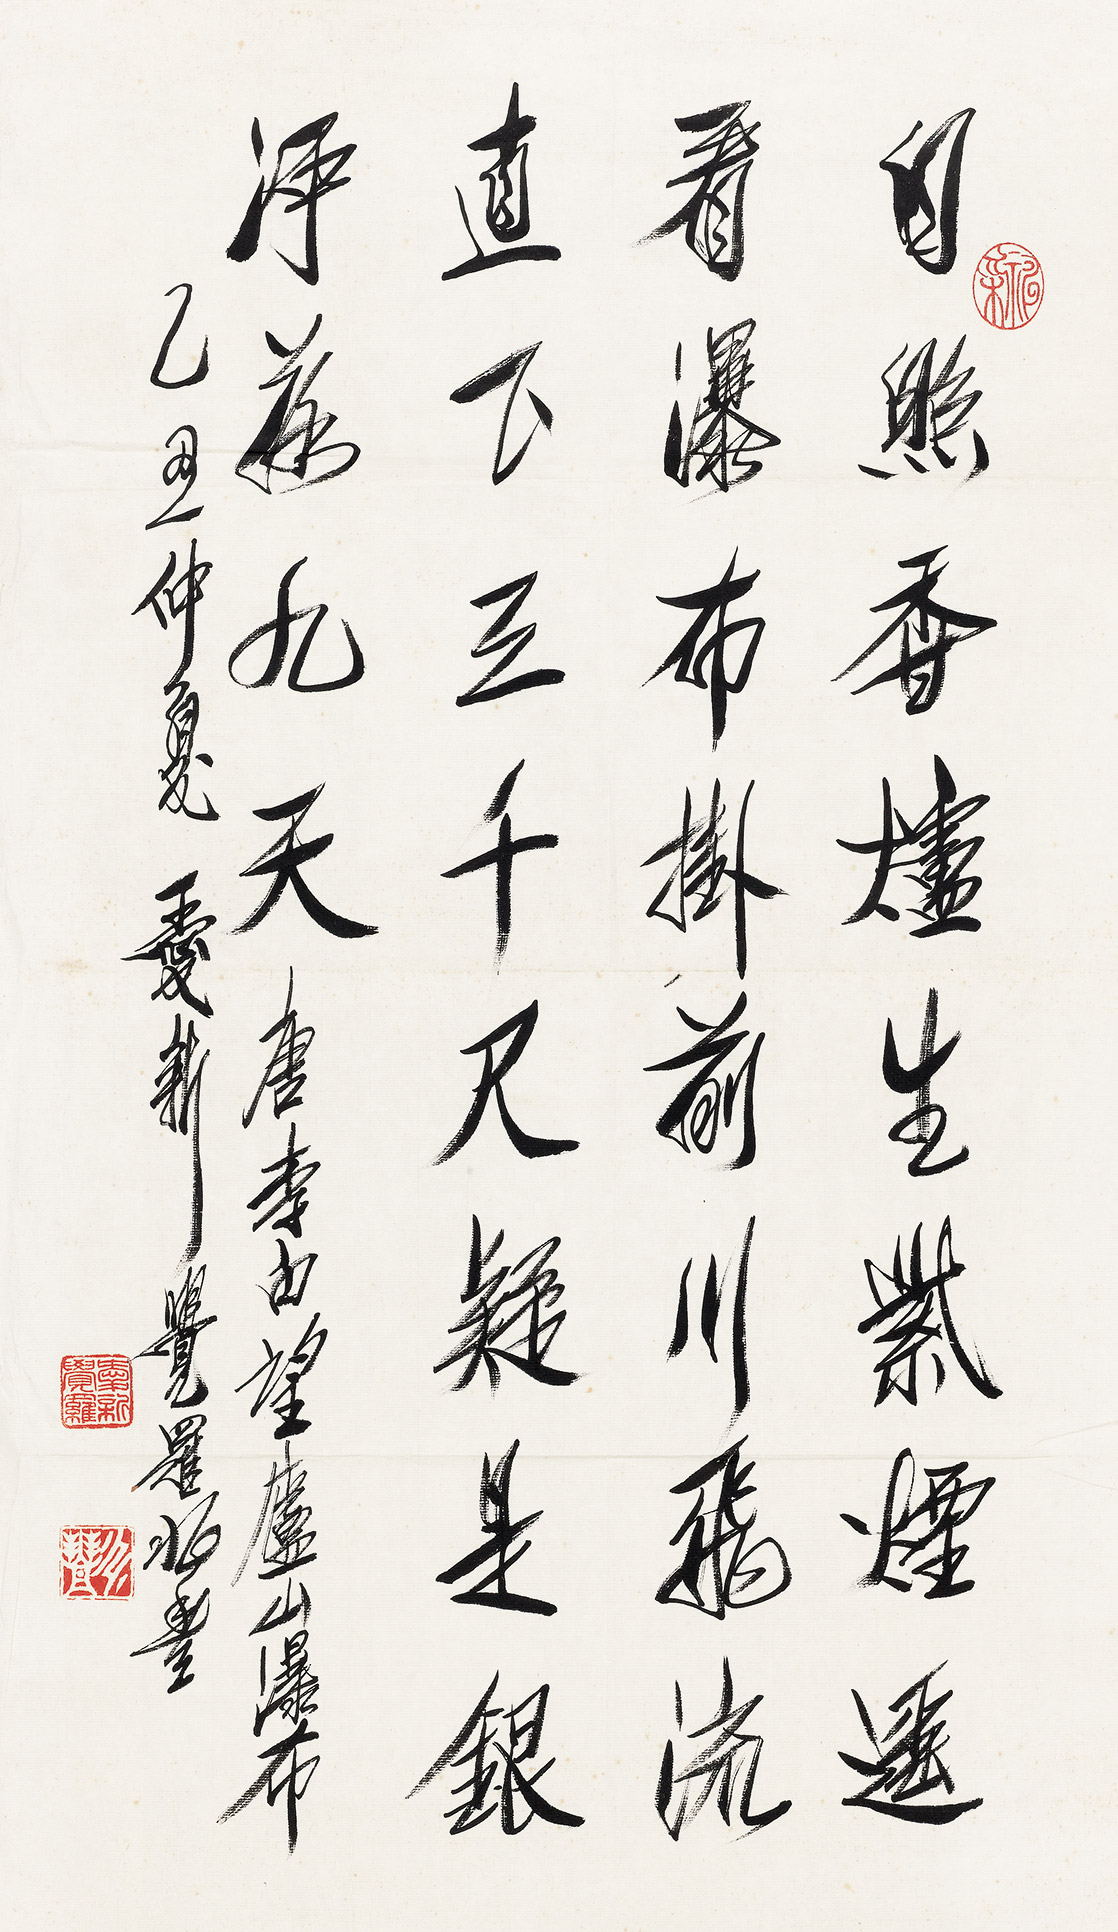 日照香爐生紫煙遥
看瀑布掛前川飛流
直下三千尺疑是銀
河落九天 唐李白望廬山瀑布
乙丑仲夏 愛新覺羅
愛新覺羅